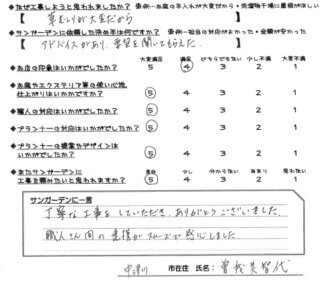 ◆なぜ工事しようと思われましたか?
【草むしりが大変だから】
◆サンガーデンに依頼した決め手は何ですか?
【アドバイスがあり、要望を聞いてもらえた。】
大変満足 満足 どちらでもない 少し不満 大変不満
◆お店の印象はいかがでしたか? 5 4 3 2 1
◆お庭やエクステリア等の使い心地、
仕上がりはいかがですか? 5 4 3 2 1
◆職人の対応はいかがでしたか? 5 4 3 2 1
◆プランナーの対応はいかがでしたか? 5 4 3 2 1
◆プランナーの提案やデザインは
いかがでしたか? 5 4 3 2 1
◆またサンガーデンに
工事を頼みたいと思われますか? 5 4 3 2 1
サンガーデンに一言
丁寧な工事をしていただき、ありがとうございました。
職人さん間の連携がスムーズで感心しました。
市在住 氏名: 曽我美智代